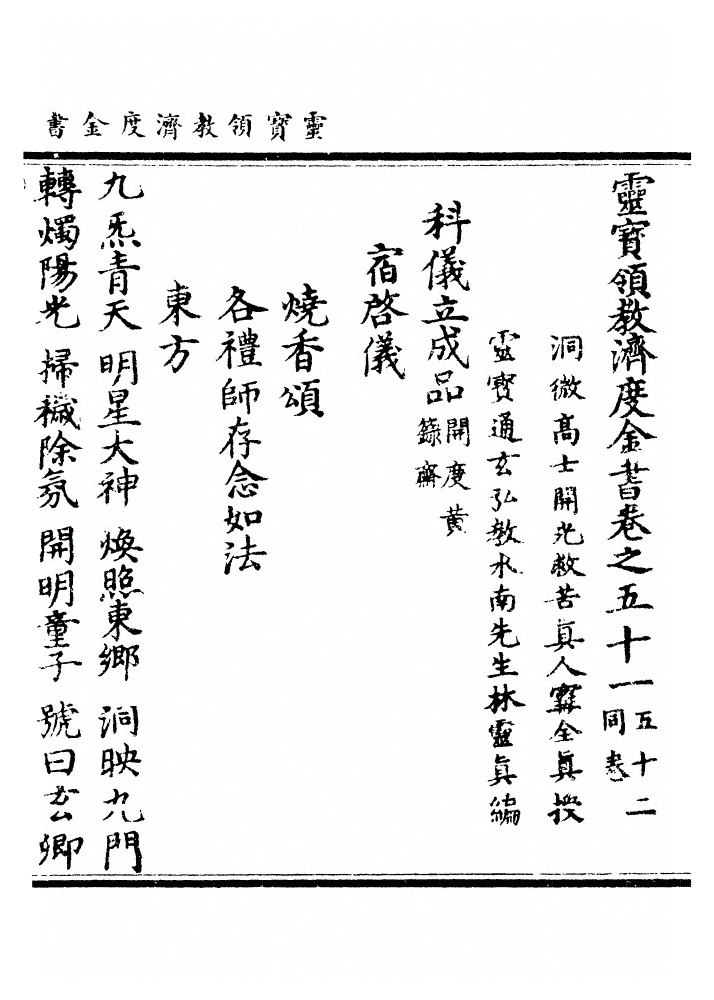 靈寶領教濟度金書
靈寶領教濟度金書卷之五十一五十二同卷
洞微高士開光救苦真人甯全真授
靈寶通玄弘教水南先生林靈真編
科儀立成品開度黃籙齋
宿啓儀
燒香頌
各禮師存念如法
東方
九炁青天 明星大神 煥照東鄉 洞映九門
轉燭陽光 掃穢除氛 開明童子 號曰玄卿